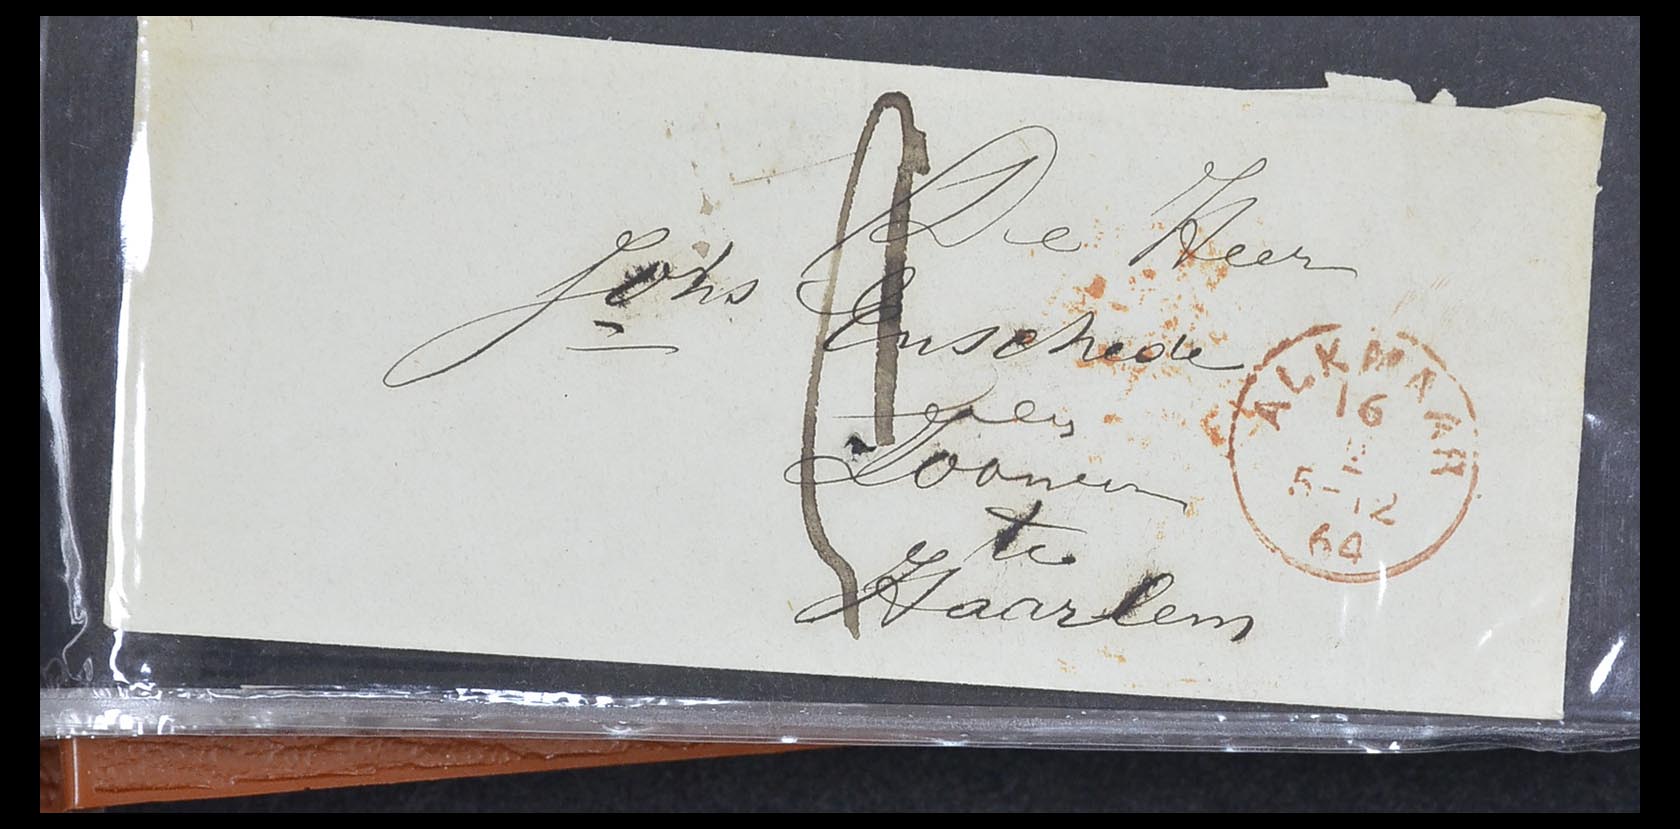 De Heer
Johs Enschede
en
Zoonen
te
Haarlem
ALKMAAR
16
5-12
64